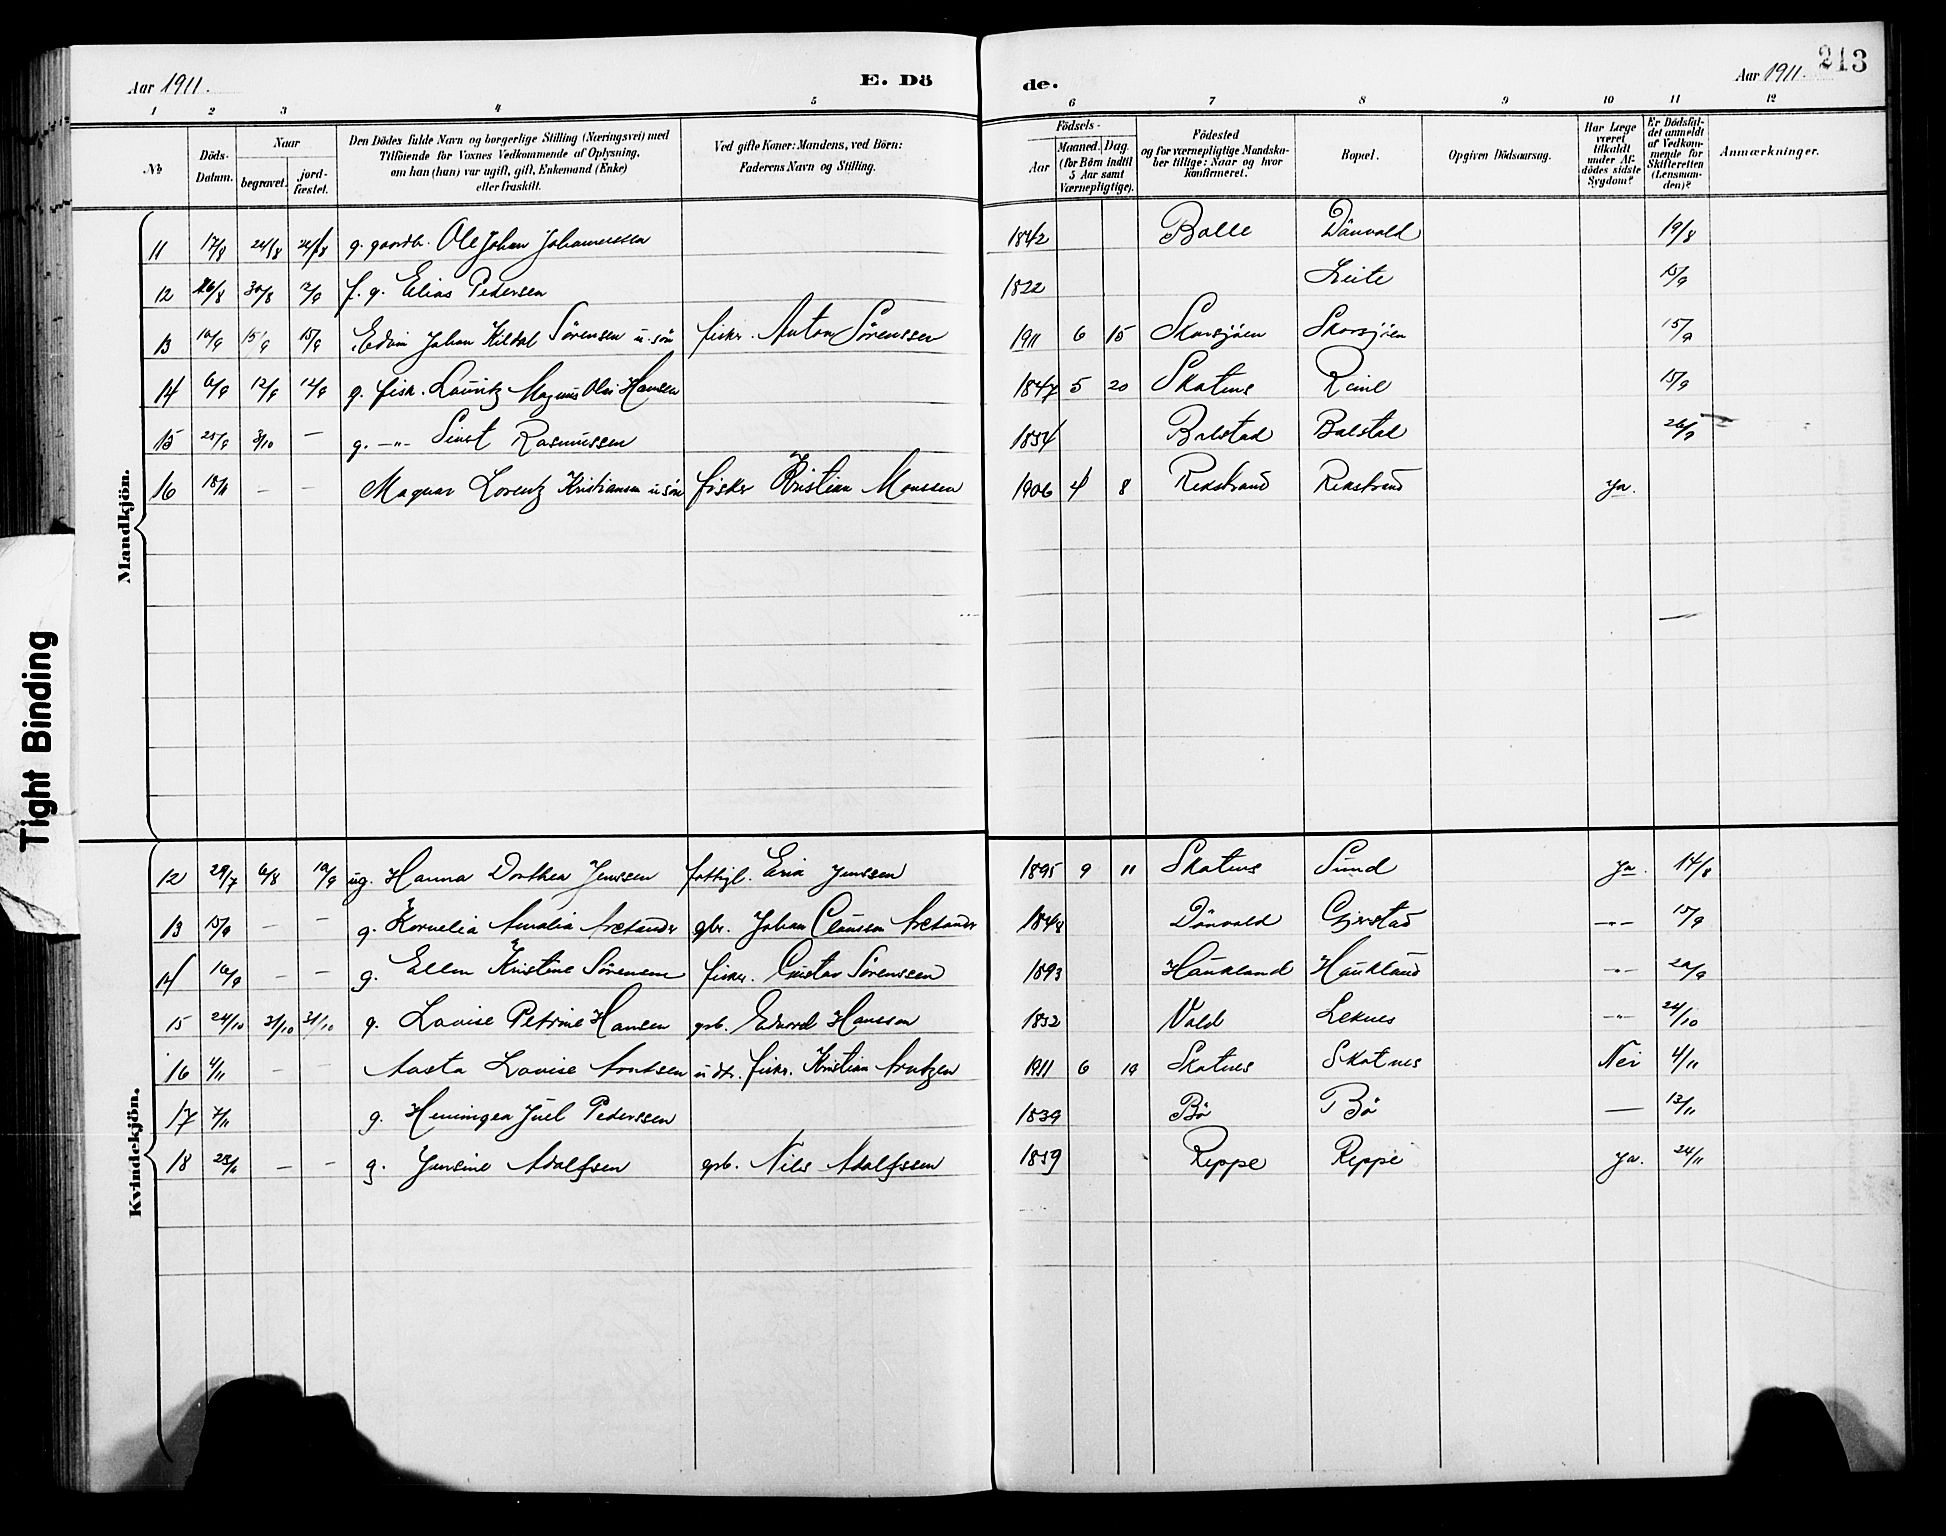 Aar 1911.
E. Dö
de.
Aar 1911.
213
1 2 3 4 5 6 7 8 9 10 11 12
No
Döds-Datum.
Naar
begravet.
jord-fæstet.
Den Dödes fulde Navn og borgerlige Stilling (Næringsvei) med
Tilföiende for Voxnes Vedkommende af Oplysning,
om han (hun) var ugift, gift, Enkemand (Enke)
eller fraskilt.
Ved gifte Koner: Mandens, ved Börn:
Faderens Navn og Stilling.
Födsels-
Aar
Maaned. Dag.
(for Börn indtil
5 Aar samt
Værnepligtige).
Födested
og for værnepligtige Mandska-
ber tillige: Naar og hvor
konfirmeret.
Bopæl.
Opgiven Dödsaarsag.
Har Læge
været
tilkaldt
under Af-
dödes sidste
Sygdom?
Er Dödsfal-
det anmeldt
af Vedkom-
mende for
Skifteretten
(Lensman-
den)?
Anmærkninger.
Mandkjön.
11 17/8 24/8 24/8 g. gaardb. Ole Johan Johannessen 1842 Bolle Dänvold 19/8
12 26/8 30/8 f. g. Elias Pedersen 1822 Leite 15/9
13 10/9 15/9 15/9 Edvin Johan Kildal Sörensen u. sön fisker. Anton Sörenssen 1911 6 15 Skarsjöen Skarsjöen 15/9
14 6/9 12/9 12/9 g. fisk. Lauritz Magnus Olai Hansen 1847 5 20 Skatnes Reine 15/9
15 25/9 3/10 — g. -"- Sivert Rasmussen 1854 Balstad Balstad 26/9
16 18/11 — — Magnar Lorentz Kristiansen u. sön fisker Kristian Monssen 1906 4 8 Rekstrand Rekstrand ja.
Kvindekjön.
12 29/7 6/8 10/9 ug. Hanna Dorthea Jenssen fattigl. Eria Jenssen 1895 9 11 Skatnes Sund ja. 14/8
13 15/9 — — g. Kornelia Amalia gbr. Johan Clausen 1848 Dönvold Gjerstad -"- 15/9
14 16/9 — — g. Ellen Kristine Sörensen fisker. Gustav Sörenssen 1893 Haukland Haukland -"- 20/9
15 24/10 31/10 31/10 g. Lovise Petrine Hansen grb. Edvard Hanssen 1832 Vold Leknes -"- 24/10
16 4/11 — — Aasta Lovise Arntsen u. dtr. fisker. Kristian Arntzen 1911 6 19 Skatnes Skatnes Nei 4/11
17 7/11 g. Henningea Juel Pederssen 1839 Bö Bö — 13/11
18 23/11 — — g. Jensine Adolfsen grb. Nils Adolfssen 1859 Reppe Reppe ja. 24/11
Tight Binding